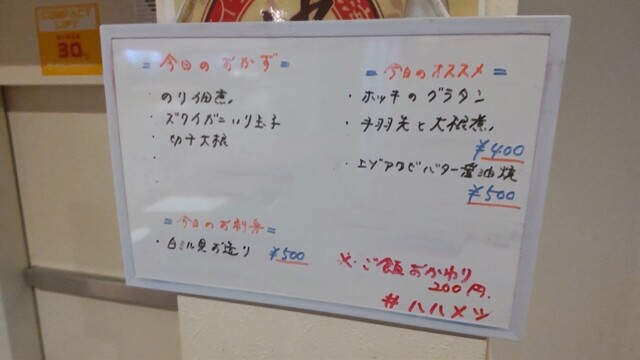 COMPACT
LIFT
30
= 今日のおかず =
・のり佃煮
・ズワイガニいり玉子
・切干大根
・
・
= 今日のお刺身 =
・白ミル貝お造り ¥500
= 今日のオススメ =
・ホッキのグラタン
・手羽先と大根煮
¥400
・エゾアワビバター醤油焼
¥500
※ ご飯おかわり
200円
#ハハメシ